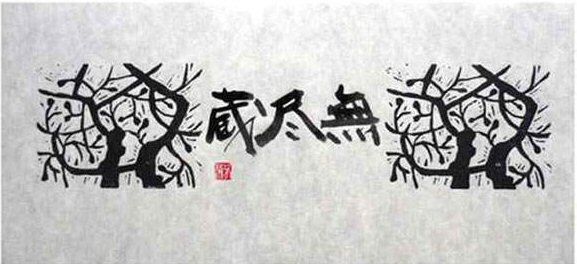 無尽蔵